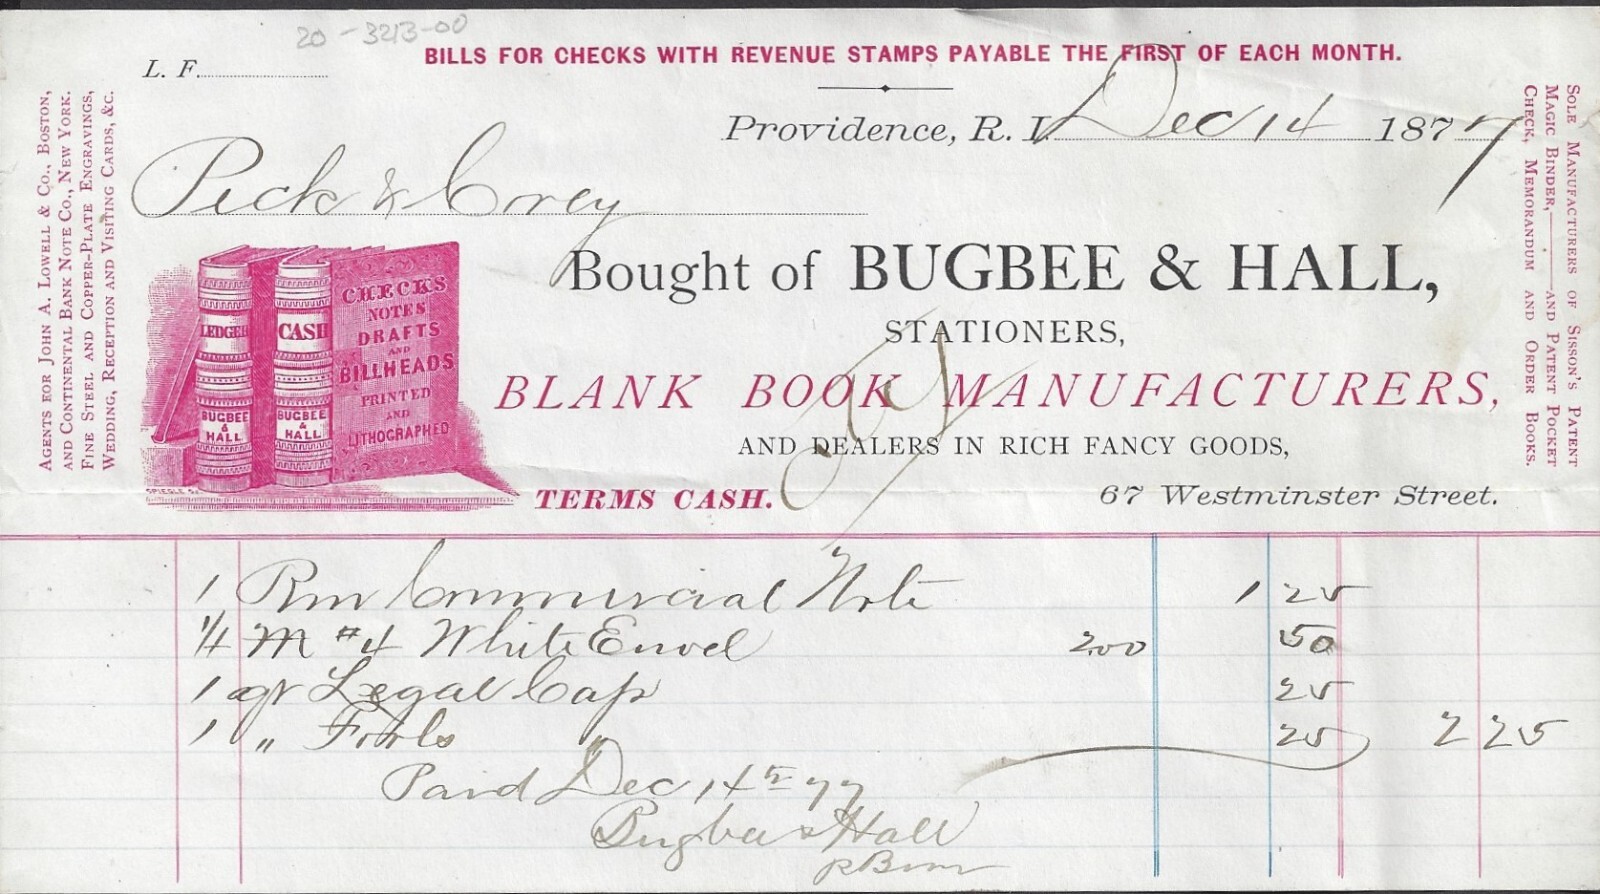 20-3213-00
BILLS FOR CHECKS WITH REVENUE STAMPS PAYABLE THE FIRST OF EACH MONTH.
L. F.
Providence, R. I. Dec 14 1877
Peck & Crey
Bought of BUGBEE & HALL,
STATIONERS,
BLANK BOOK MANUFACTURERS,
AND DEALERS IN RICH FANCY GOODS,
TERMS CASH.
67 Westminster Street.
AGENTS FOR JOHN A. LOWELL & CO., BOSTON,
AND CONTINENTAL BANK NOTE CO., NEW YORK.
FINE STEEL AND COPPER-PLATE ENGRAVINGS,
WEDDING, RECEPTION AND VISITING CARDS, &C.
SOLE MANUFACTURERS OF SISSON'S PATENT
MAGIC BINDER,——AND PATENT POCKET
CHECK, MEMORANDUM AND ORDER BOOKS.
LEDGER
BUGBEE
&
HALL
CASH
BUGBEE
&
HALL
CHECKS
NOTES
DRAFTS
AND
BILLHEADS
PRINTED
AND
LITHOGRAPHED
1 Rm Commercial Note 1 25
1/4 M #4 White Envel 2.00 50
1 qr Legal Cap 25
1 " Fools " 25 2 25
Paid Dec 14th 77
Bugbee & Hall